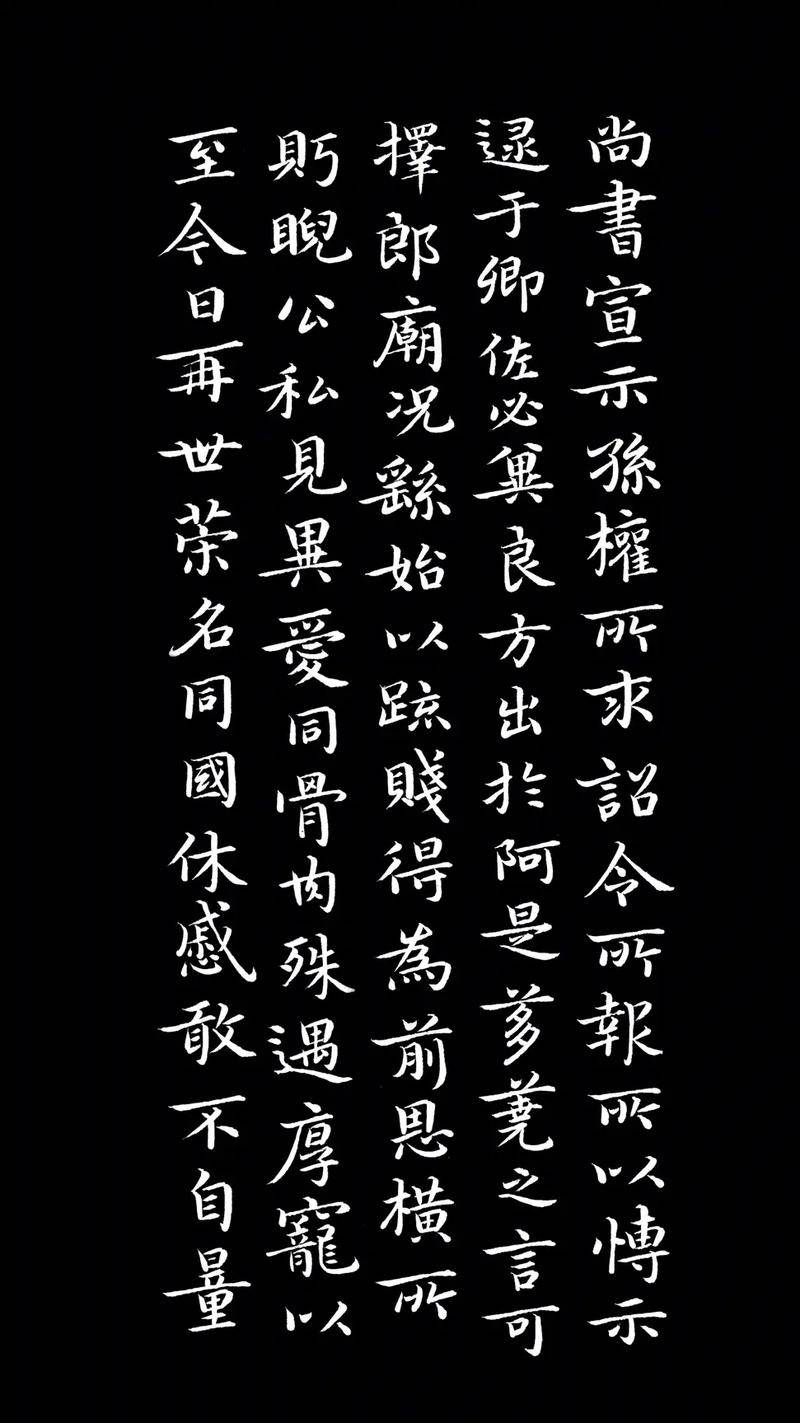 尚書宣示孫權所求詔令所報所以慱示
逯于卿佐必冀良方出於阿是芻蕘之言可
擇郎廟况繇始以疏賤得為前恩横所
眄睨公私見異愛同骨肉殊遇厚寵以
至今日再世荣名同國休慼敢不自量